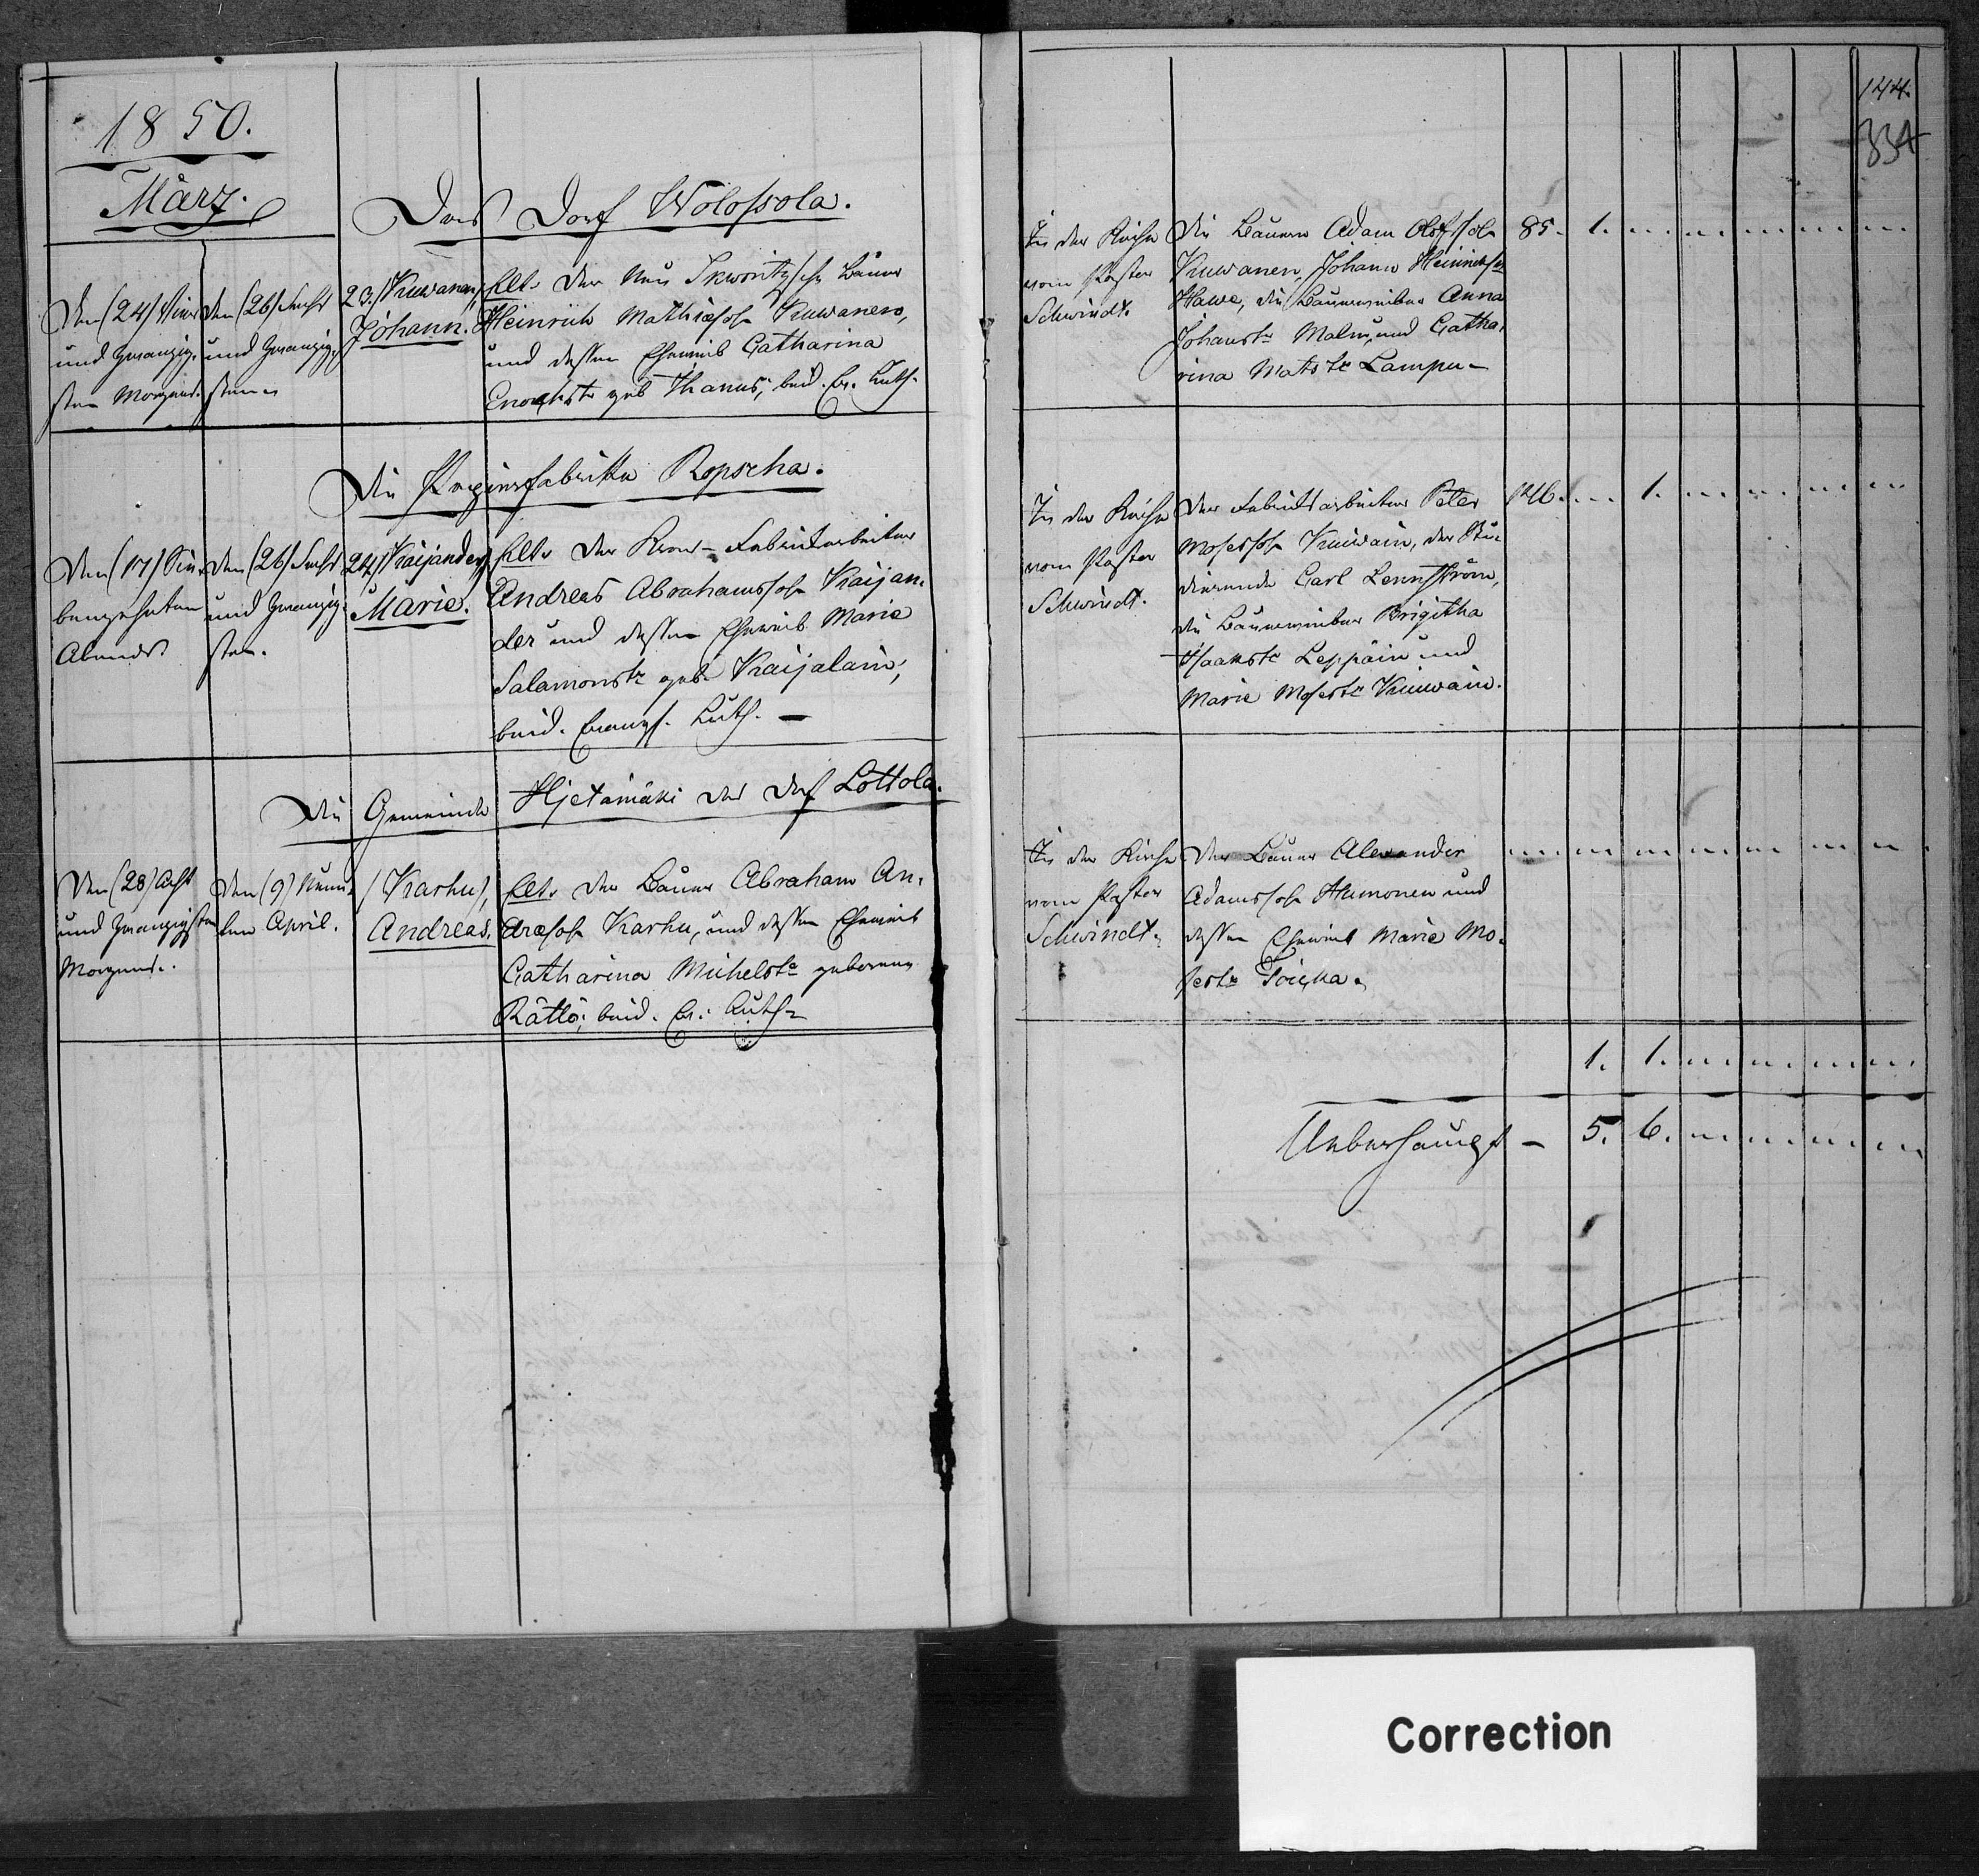 1850.
März.
Das Dorf Wolossola.
Den (24) Vier
und zwanzig-
sten Morgens.
Den (26) Sechs
und zwanzig-
sten.
23. (Kuwanen),
Johann.
Elt. Der Neu Skworitzsche Bauer
Heinrich Mathiessohn Kuwanen,
und dessen Eheweib Catharina
Enochstr geb. Thanus; beid. Ev. Luth.
Die Papierfabrike Ropscha.
Den (17) Sie-
benzehnten
Abends.
Den (26) Sechs
und zwanzig-
sten.
24. (Kaijander)
Marie.
Elt. Der Krons-Fabrikarbeiter
Andreas Abrahamssohn Kaijan-
der und dessen Eheweib Marie
Salamonstr geb. Kaijalain;
beid. Evang. Luth. –
Die Gemeinde Hjetamäki das Dorf Lottola.
Den (28) Acht
und zwanzigsten
Morgens.
Den (9) Neun-
ten April.
(Karhu),
Andreas.
Elt. Der Bauer Abraham An-
dreasohn Karhu, und dessen Eheweib
Catharina Michelstr geborene
Rättö; beid. Ev. Luth.
144.
334
In der Kirche
vom Pastor
Schwindt.
Die Bauern Adam Olofsohn
Kuwanen, Johann Heinrichsohn
Hawe, die Bauerweiber Anna
Johanstr Malm, und Catha-
rina Matstr Lampu –
85. 1.
In der Kirche
vom Pastor
Schwindt.
Der Fabrikarbeiter Peter
Mosessohn Kuiwain, der Stu-
dierende Carl Lennström,
die Bauerweiber Brigitha
Isaakstr Leppäin und
Marie Mosestr Kuiwain.
126. 1.
In der Kirche
vom Pastor
Schwindt.
Der Bauer Alexander
Adamssohn Humonen und
dessen Eheweib Marie Mo-
sestr Toicka.
1. 1.
Ueberhaupt – 5. 6.
Correction